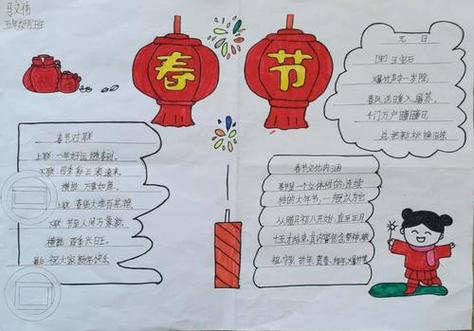 春节
元日
[宋]王安石
爆竹声中一岁除,
春风送暖入屠苏。
千门万户曈曈日
总把新桃换旧符
春节对联
上联:一年好运随春到,
下联:四季彩云滚滚来。
横批:万事如意。
上联:春临大地百花艳,
下联:节至人间万象新。
横批:
祝大家新年快乐
春节文化内涵
春节是一个立体性的、连续
性的大年节,一般认为它
从腊月初八开始,直至正月
十五才结束,其内容包含祭神、
祖、守岁、拜年、